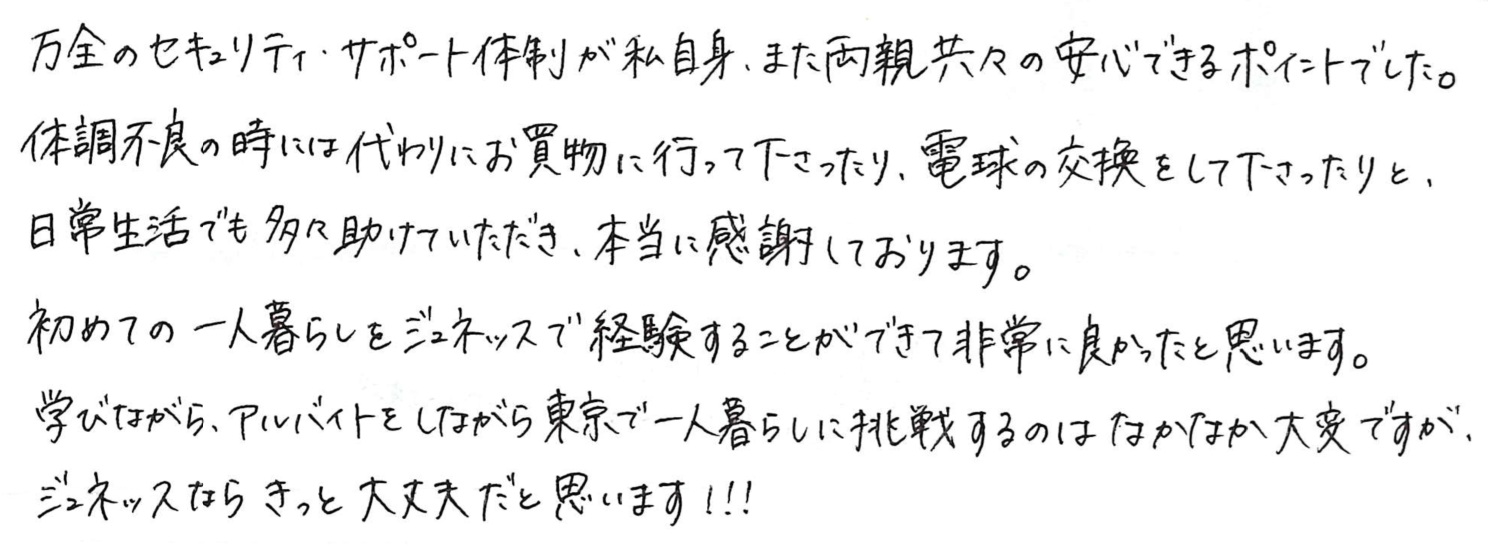 万全のセキュリティ・サポート体制が私自身、また両親共々の安心できるポイントでした。
体調不良の時には代わりにお買物に行って下さったり、電球の交換をして下さったりと、
日常生活でも多々助けていただき、本当に感謝しております。
初めての一人暮らしをジュネッスで経験することができて非常に良かったと思います。
学びながら、アルバイトをしながら東京で一人暮らしに挑戦するのはなかなか大変ですが、
ジュネッスならきっと大丈夫だと思います!!!